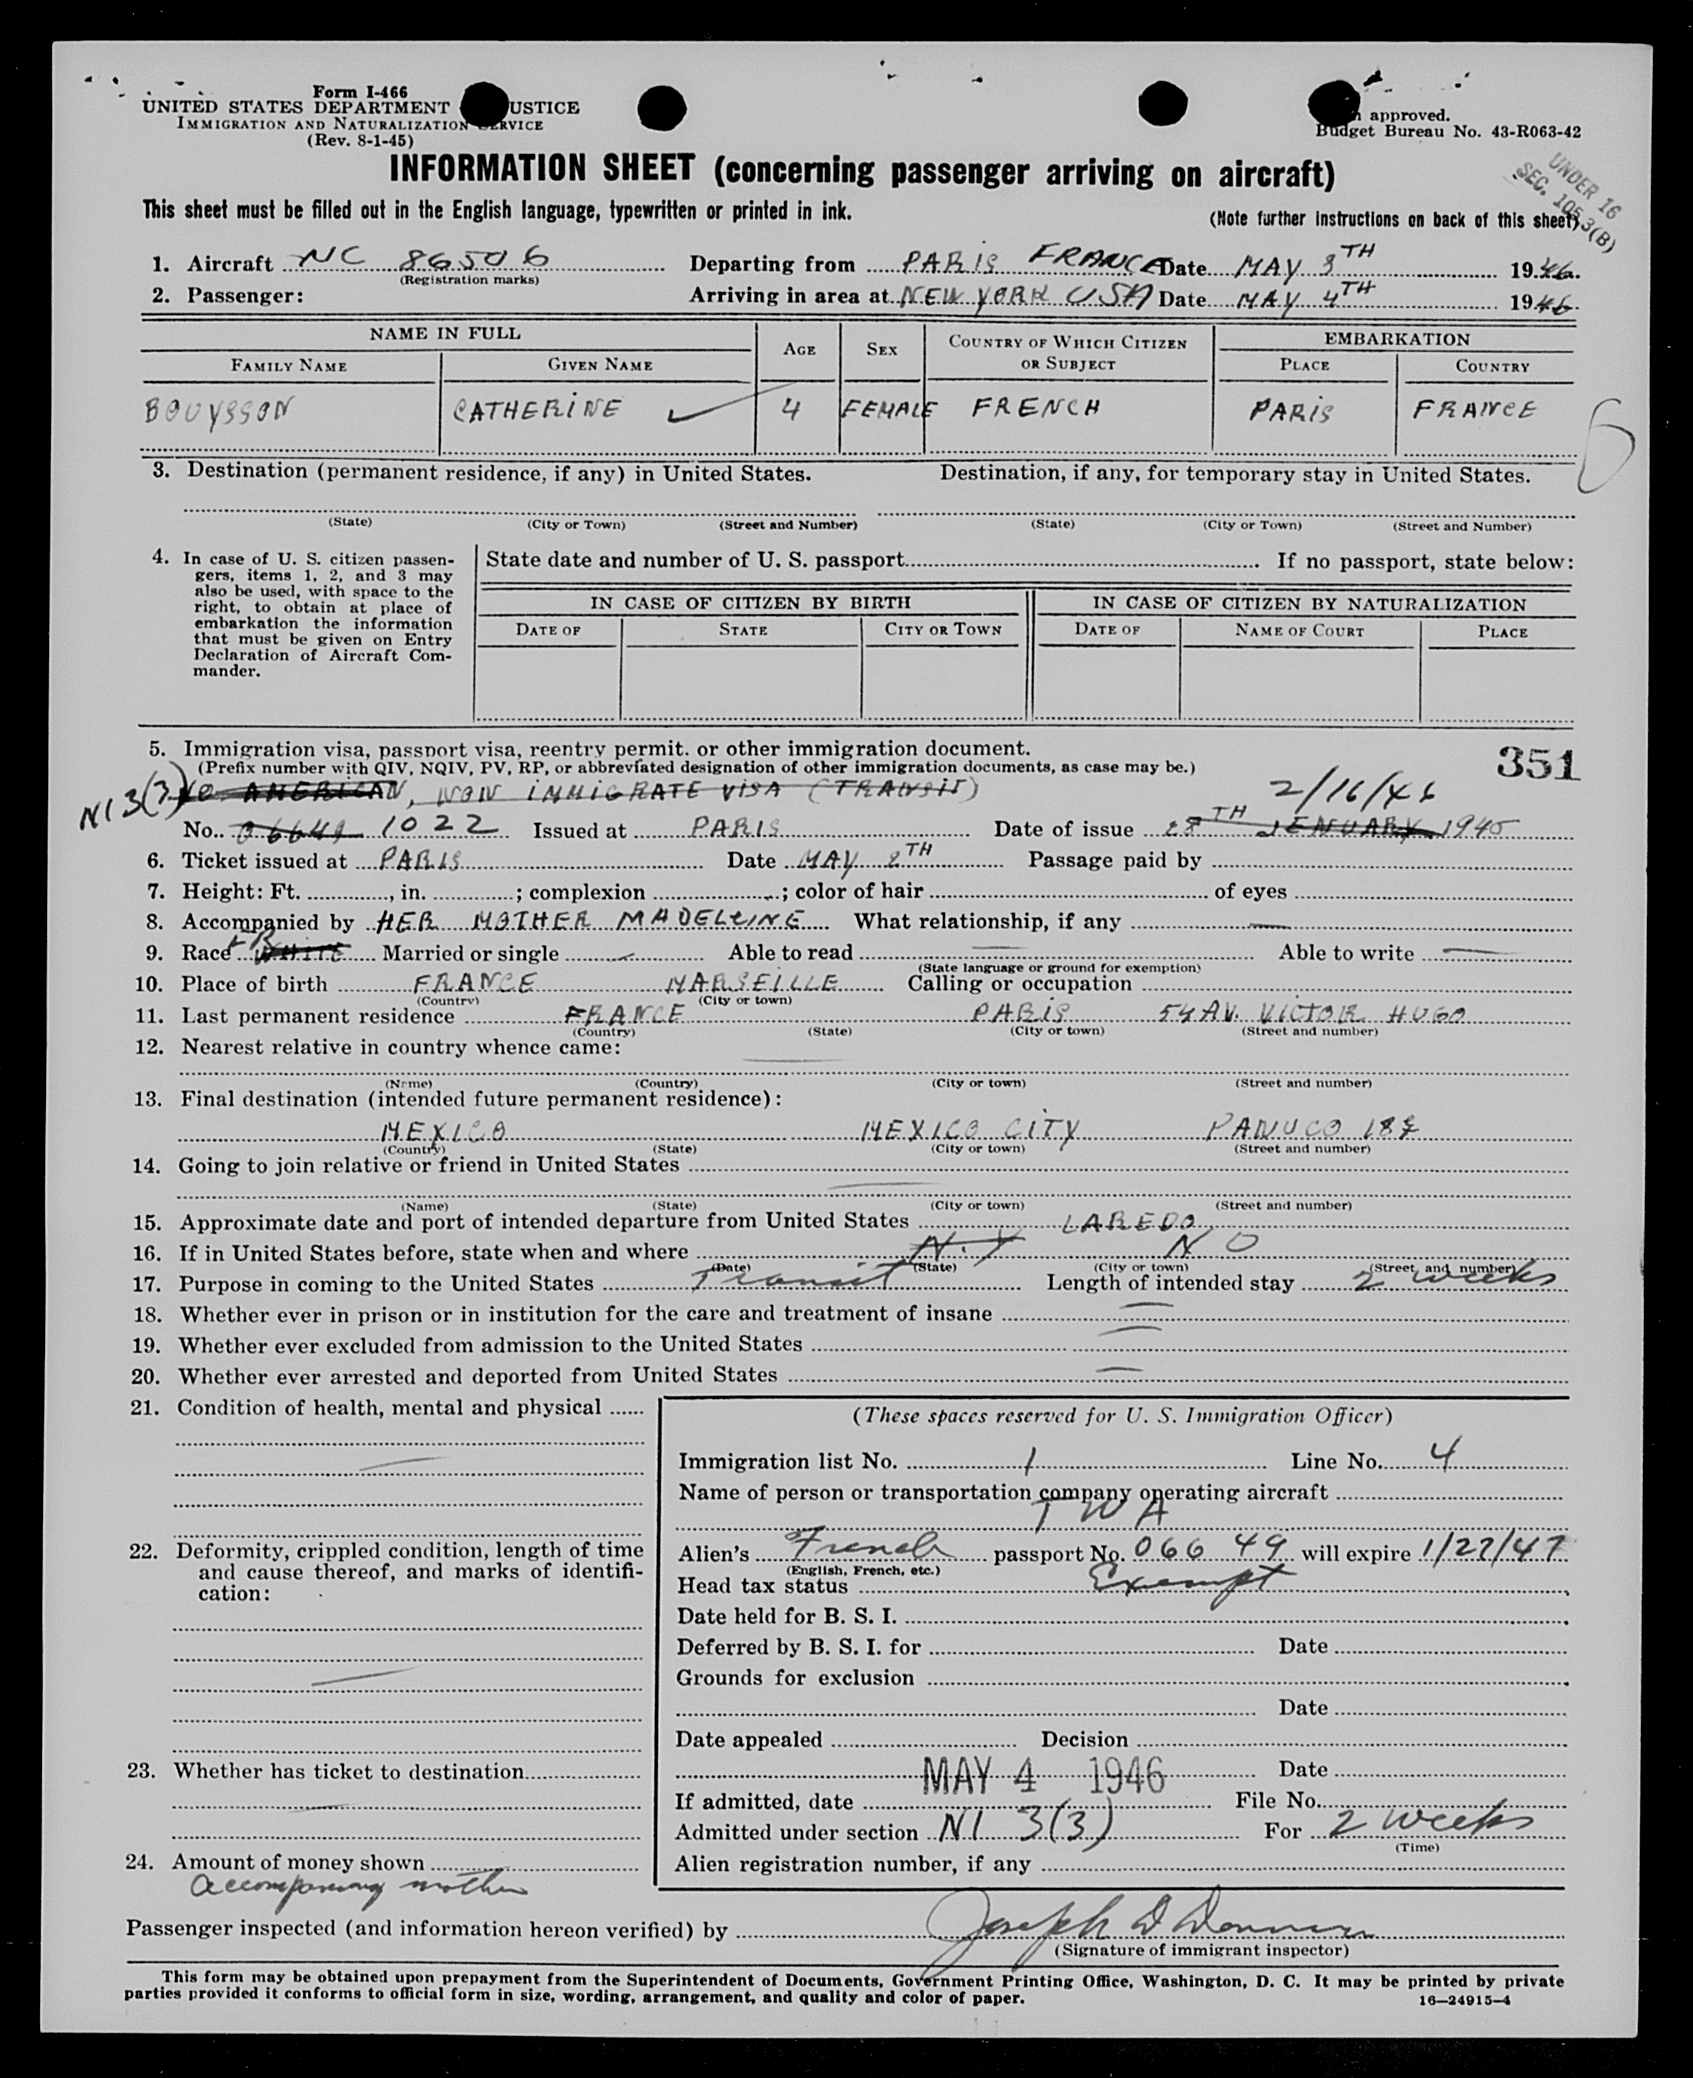 Form I-466
UNITED STATES DEPARTMENT USTICE
IMMIGRATION AND NATURALIZATION SERVICE
(Rev. 8-1-45)
approved.
Budget Bureau No. 43-R063-42
INFORMATION SHEET (concerning passenger arriving on aircraft)
UNDER 16
SEC. 105.3(B)
This sheet must be filled out in the English language, typewritten or printed in ink.
(Note further instructions on back of this sheet)
1. Aircraft NC 86506 Departing from PARIS FRANCE Date MAY 3TH 1946.
(Registration marks)
2. Passenger: Arriving in area at NEW YORK USA Date MAY 4TH 1946.
NAME IN FULL AGE SEX COUNTRY OF WHICH CITIZEN OR SUBJECT EMBARKATION
FAMILY NAME GIVEN NAME PLACE COUNTRY
BOUYSSON CATHERINE 4 FEMALE FRENCH PARIS FRANCE
6
3. Destination (permanent residence, if any) in United States. Destination, if any, for temporary stay in United States.
(State) (City or Town) (Street and Number) (State) (City or Town) (Street and Number)
4. In case of U. S. citizen passen-
gers, items 1, 2, and 3 may
also be used, with space to the
right, to obtain at place of
embarkation the information
that must be given on Entry
Declaration of Aircraft Com-
mander.
State date and number of U. S. passport If no passport, state below:
IN CASE OF CITIZEN BY BIRTH IN CASE OF CITIZEN BY NATURALIZATION
DATE OF STATE CITY OR TOWN DATE OF NAME OF COURT PLACE
5. Immigration visa, passport visa, reentry permit, or other immigration document.
351
(Prefix number with QIV, NQIV, PV, RP, or abbreviated designation of other immigration documents, as case may be.)
NI 3(3) AMERICAN, NON IMMIGRATE VISA (TRANSIT) 2/16/46
No. 06649 1022 Issued at PARIS Date of issue 28TH JENUARY 1945
6. Ticket issued at PARIS Date MAY 2TH Passage paid by
7. Height: Ft. , in. ; complexion ; color of hair of eyes
8. Accompanied by HER MOTHER MADELEINE What relationship, if any —
9. Race FR WHITE Married or single Able to read — Able to write —
(State language or ground for exemption)
10. Place of birth FRANCE MARSEILLE Calling or occupation
(Country) (City or town)
11. Last permanent residence FRANCE PARIS 54 AV. VICTOR HUGO
(Country) (State) (City or town) (Street and number)
12. Nearest relative in country whence came: —
(Name) (Country) (City or town) (Street and number)
13. Final destination (intended future permanent residence):
MEXICO MEXICO CITY PANUCO
(Country) (State) (City or town) (Street and number)
14. Going to join relative or friend in United States
—
(Name) (State) (City or town) (Street and number)
15. Approximate date and port of intended departure from United States LAREDO
16. If in United States before, state when and where N.Y NO
(Date) (State) (City or town) (Street and number)
17. Purpose in coming to the United States Transit Length of intended stay 2 weeks
18. Whether ever in prison or in institution for the care and treatment of insane —
19. Whether ever excluded from admission to the United States —
20. Whether ever arrested and deported from United States —
21. Condition of health, mental and physical
—
22. Deformity, crippled condition, length of time
and cause thereof, and marks of identifi-
cation:
—
23. Whether has ticket to destination
—
24. Amount of money shown
accompanying mother
(These spaces reserved for U. S. Immigration Officer)
Immigration list No. 1 Line No. 4
Name of person or transportation company operating aircraft
TWA
Alien's French passport No. 066 49 will expire 1/27/47
(English, French, etc.)
Head tax status Exempt
Date held for B. S. I.
Deferred by B. S. I. for Date
Grounds for exclusion
Date
Date appealed Decision
Date
If admitted, date MAY 4 1946 File No.
Admitted under section NI 3(3) For 2 weeks
(Time)
Alien registration number, if any
Passenger inspected (and information hereon verified) by Joseph D
(Signature of immigrant inspector)
This form may be obtained upon prepayment from the Superintendent of Documents, Government Printing Office, Washington, D. C. It may be printed by private
parties provided it conforms to official form in size, wording, arrangement, and quality and color of paper.
16—24915-4